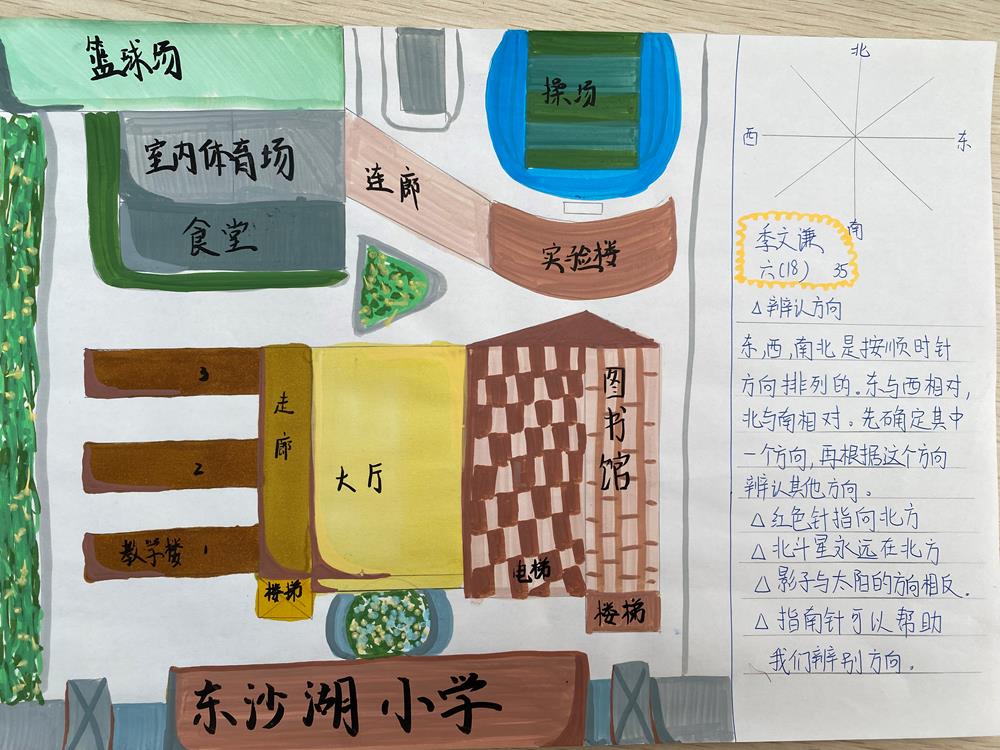 篮球场
操场
室内体育场
连廊
食堂
实验楼
3
走廊
大厅
图书馆
2
教学楼 1
电梯
楼梯
楼梯
东沙湖小学
北
西
东
南
季文谦
六(18) 35
△辨认方向
东,西,南北是按顺时针
方向排列的。东与西相对,
北与南相对。先确定其中
一个方向,再根据这个方向
辨认其他方向。
△红色针指向北方
△北斗星永远在北方
△影子与太阳的方向相反.
△指南针可以帮助
我们辨别方向。